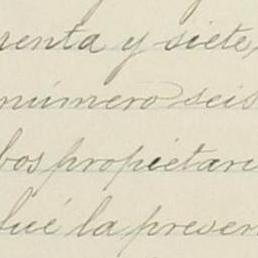 renta y siete,
número seis
bos propietari
bué la presen